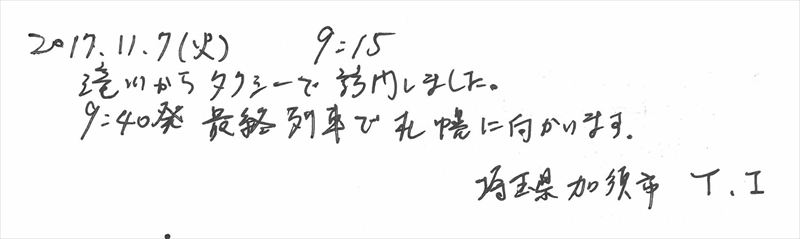 2017.11.7(火) 9:15
滝川からタクシーで訪問しました。
9:40発 最終列車で札幌に向かいます。
埼玉県加須市 T.I